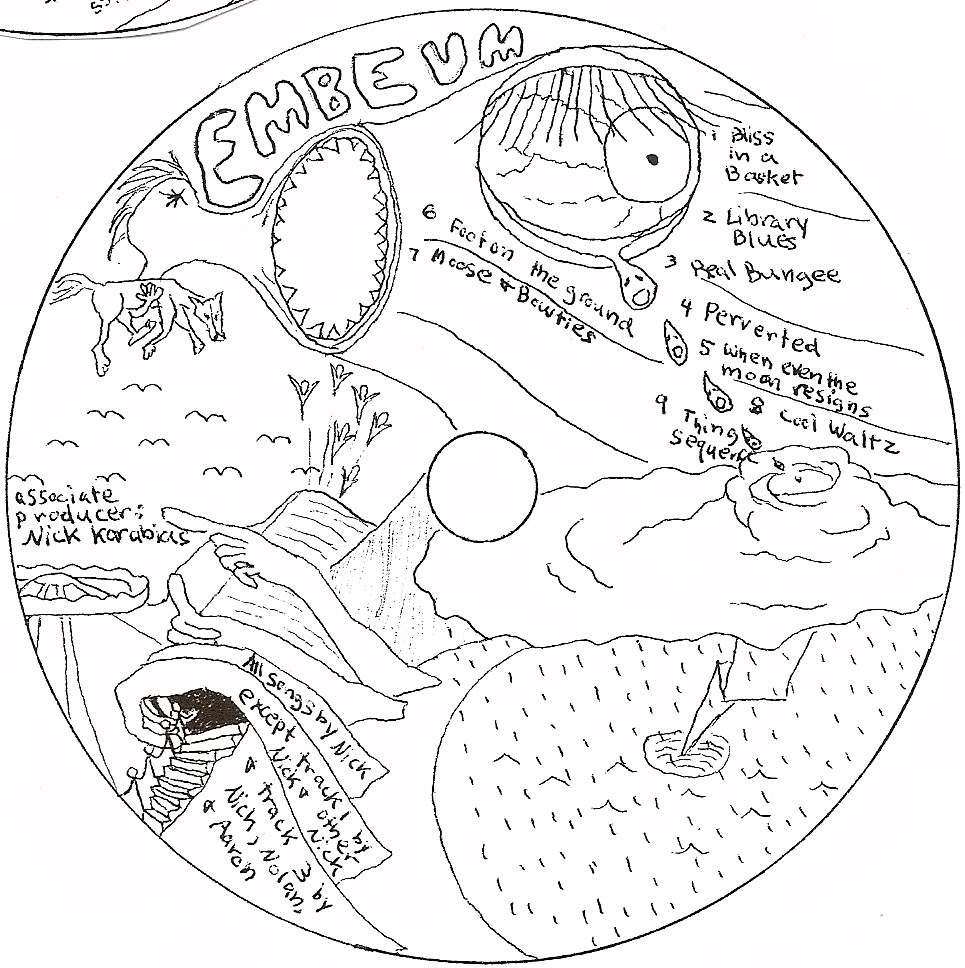 EMBEUM
1 Bliss
in a
Basket
2 Library
Blues
3 Real Bungee
4 Perverted
5 when even the
moon resigns
6 Foot on the ground
7 Moose & Bowties
8 Cool Waltz
9 Thing
sequence
associate
producer:
Nick Karabias
All songs by Nick
except track 1 by
Nick & other
Nick
& track 3 by
Nick, Nolan,
& Aaron